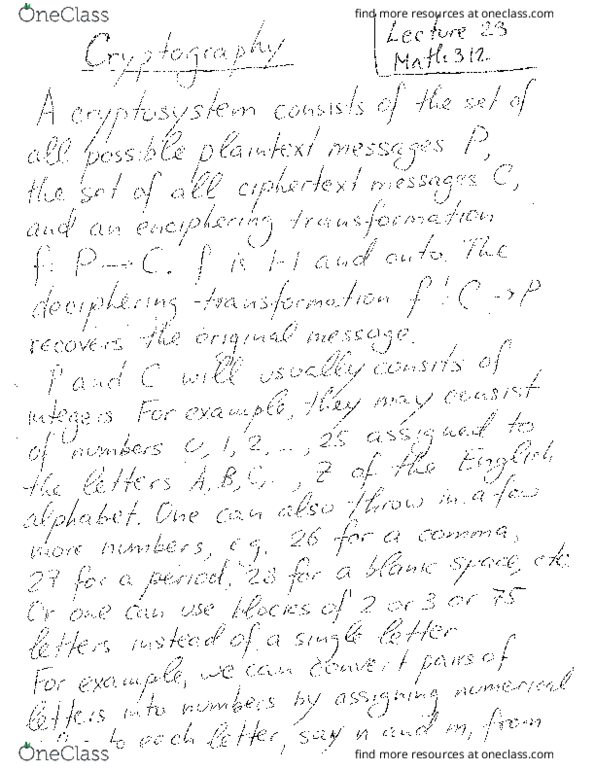 OneClass
find more resources at oneclass.com
Lecture 23
Math 312
Cryptography
A cryptosystem consists of the set of
all possible plaintext messages P,
the set of all ciphertext messages C,
and an enciphering transformation
f: P → C. f is 1-1 and onto. The
deciphering transformation f⁻¹: C → P
recovers the original message.
P and C will usually consits of
integers For example, they may consist
of numbers 0, 1, 2, ..., 25 assigned to
the letters A, B, C, .., Z of the English
alphabet. One can also throw in a few
more numbers, e.g. 26 for a comma,
27 for a period, 28 for a blank space, etc.
Or one can use blocks of 2 or 3 or 75
letters instead of a single letter
For example, we can convert pairs of
letters into numbers by assigning numerical
to each letter, say n and m, from
OneClass
find more resources at oneclass.com